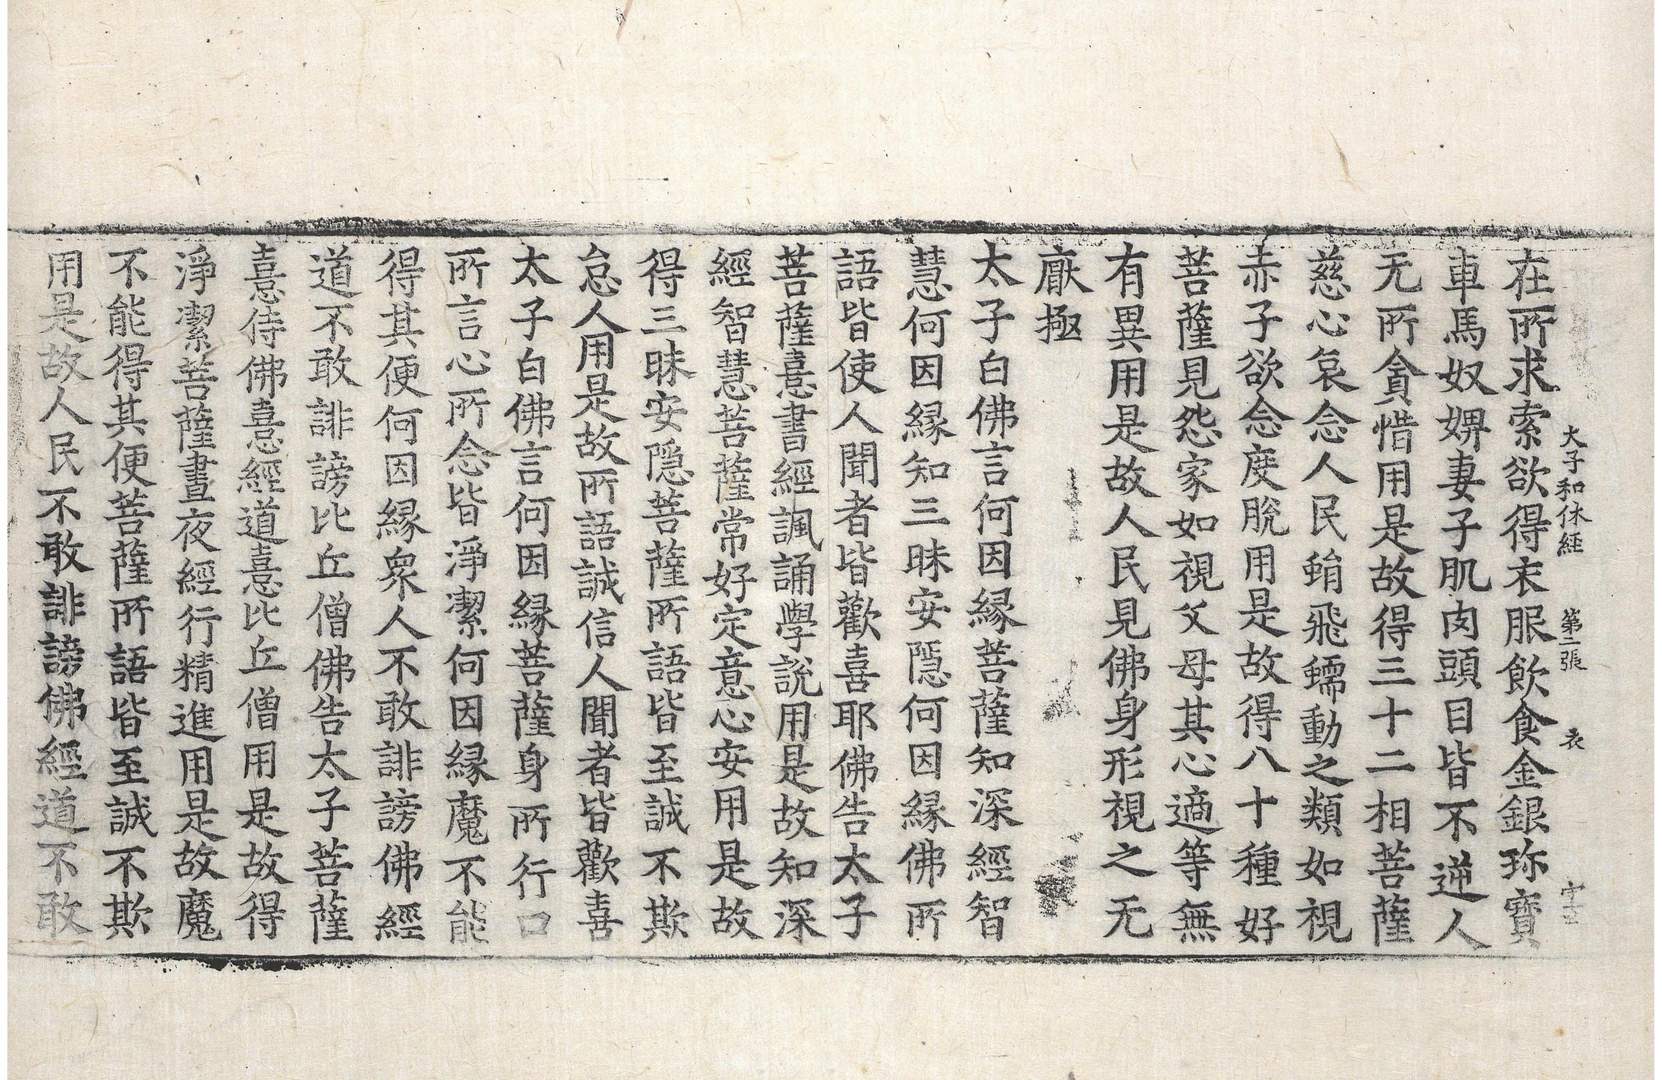 太子和休經 第二張 衣
在所求索欲得衣服飲食金銀珎寶
車馬奴婢妻子肌肉頭目皆不逆人
无所貪惜用是故得三十二相菩薩
慈心哀念人民蜎飛蠕動之類如視
赤子欲念度脫用是故得八十種好
菩薩見怨家如視父母其心適等無
有異用是故人民見佛身形視之无
厭極
太子白佛言何因緣菩薩知深經智
慧何因緣知三昧安隱何因緣佛所
語皆使人聞者皆歡喜耶佛告太子
菩薩憙書經諷誦學說用是故知深
經智慧菩薩常好定意心安用是故
得三昧安隱菩薩所語皆至誠不欺
怠人用是故所語誠信人聞者皆歡喜
太子白佛言何因緣菩薩身所行口
所言心所念皆淨潔何因緣魔不能
得其便何因緣衆人不敢誹謗佛經
道不敢誹謗比丘僧佛告太子菩薩
憙侍佛憙經道憙比丘僧用是故得
淨潔菩薩晝夜經行精進用是故魔
不能得其便菩薩所語皆至誠不欺
用是故人民不敢誹謗佛經道不敢